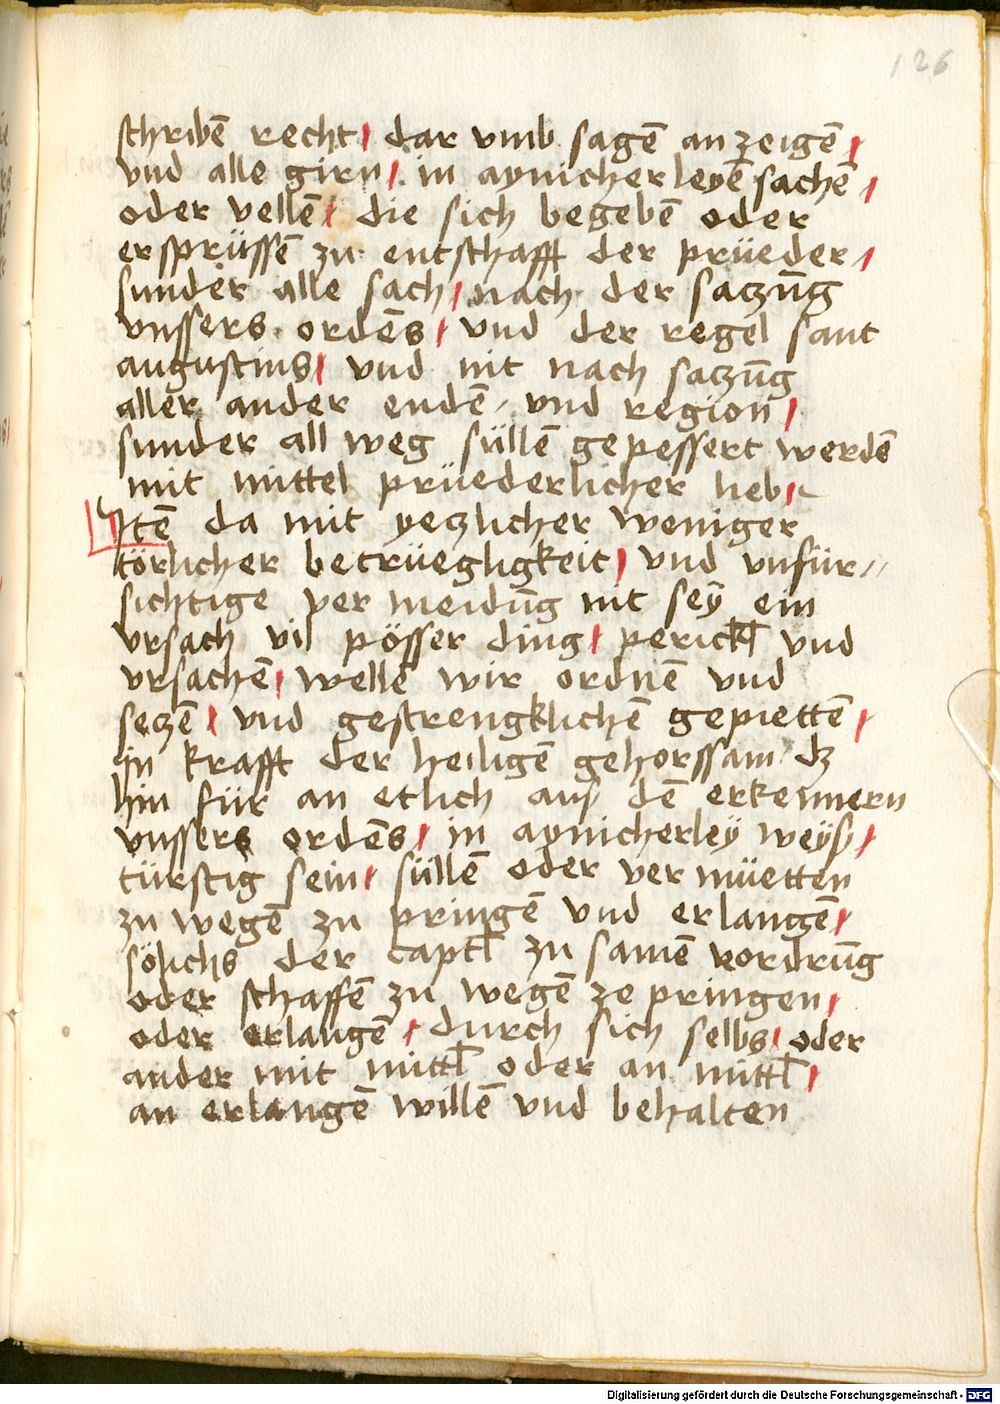 126
schribē recht / dar vmb sagē an zeigē /
vnd alle girn / in aynicherleyē sachē /
oder vellē / die sich begebē oder
ersprüssē zu entschafft der prüeder /
sunder alle sach / nach der saczūg
vnssers ordēs / vnd der regel sant
augustins / vnd nit nach saczūg
aller ander endē / vnd region /
sunder all weg süllē gepessert werdē
mit mittel prüederlicher lieb /
Itē da mit yeczlicher weniger
törlicher betrüegligkeit / vnd vnfür //
sichtige ver meidūg nit seӱ ein
vrsach vil pösser ding / perickl vnd
vrsachē / wellē wir ordnē vnd
seczē / vnd gestrengklichē gepiettē /
in krafft der heiligē gehorssam dz
hin für an etlich auß dē erkennern
vnssers ordēs / in aynicherleӱ weӱß /
türstig sein / süllē oder ver müetten
zu wegē zu pringē vnd erlangē /
sölichs der captl zu samē vordrūg
oder schaffē zu wegē ze pringen /
oder erlangē / durch sich selbs / oder
ander mit mittl oder an mittl /
an erlangē willē vnd behalten
Digitalisierung gefördert durch die Deutsche Forschungsgemeinschaft - DFG